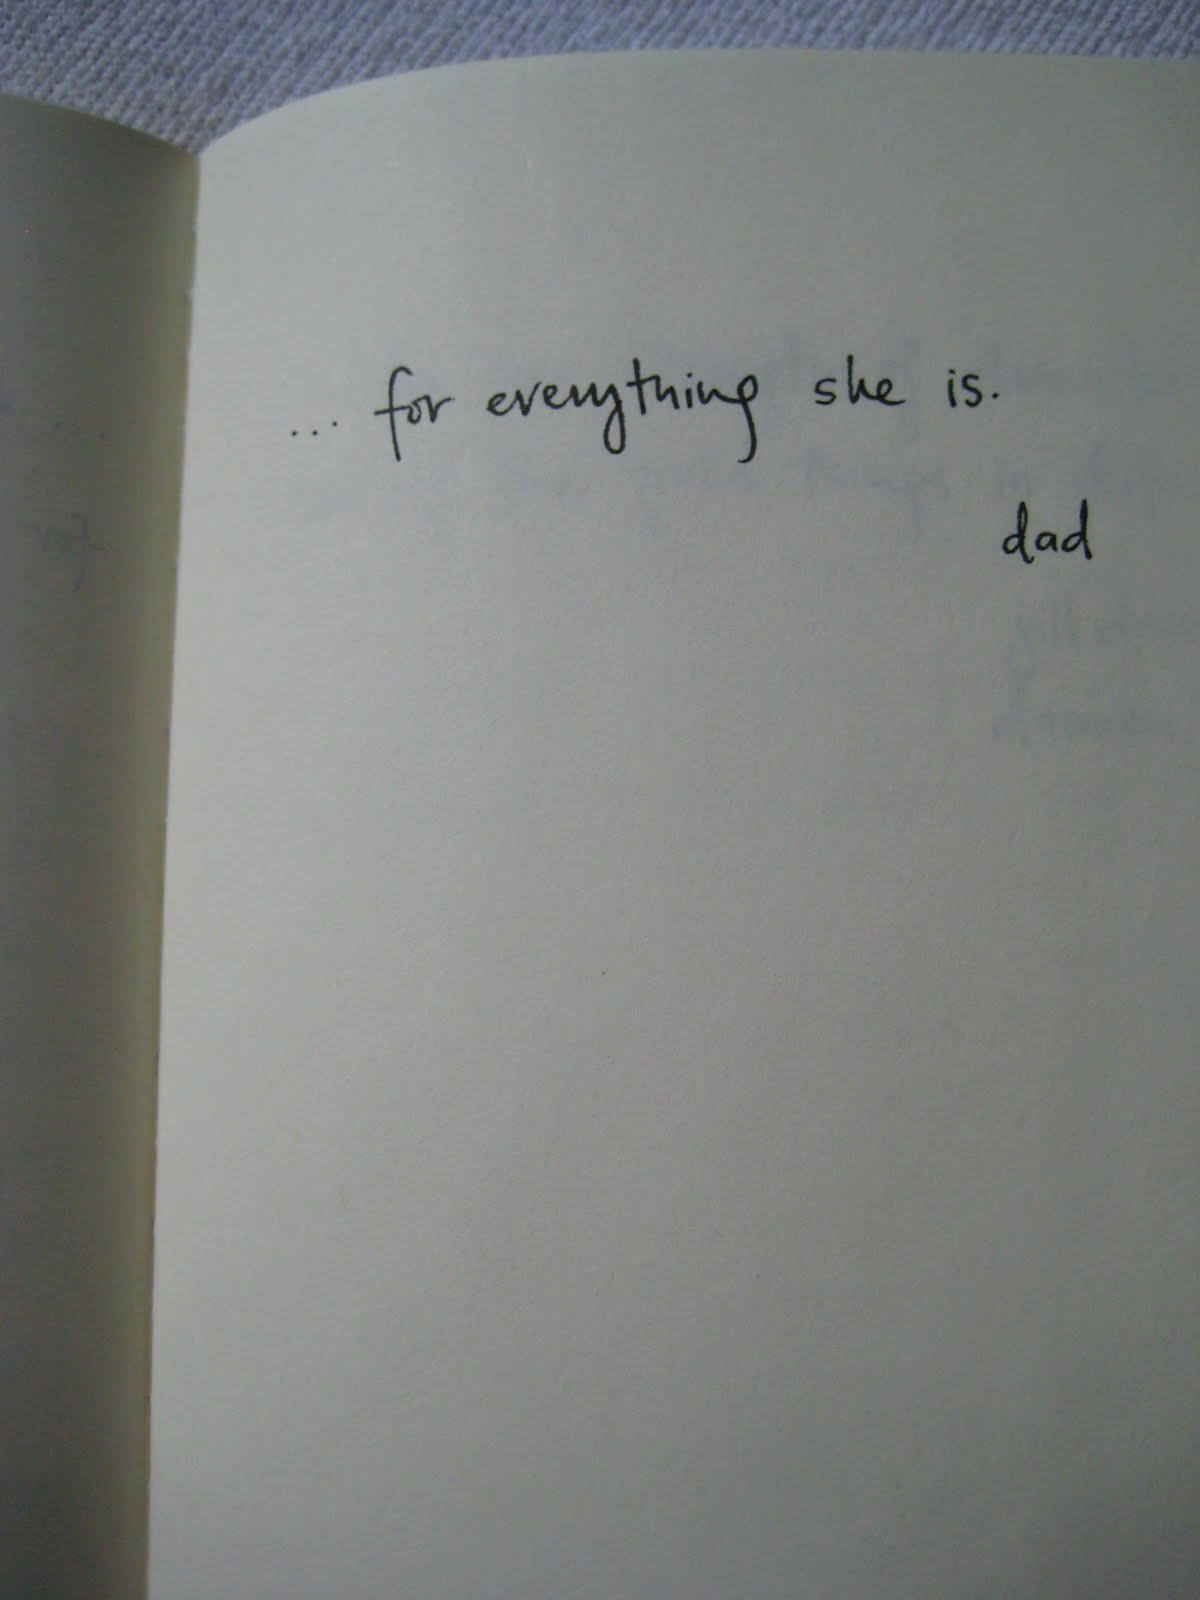 ... for everything she is.
dad